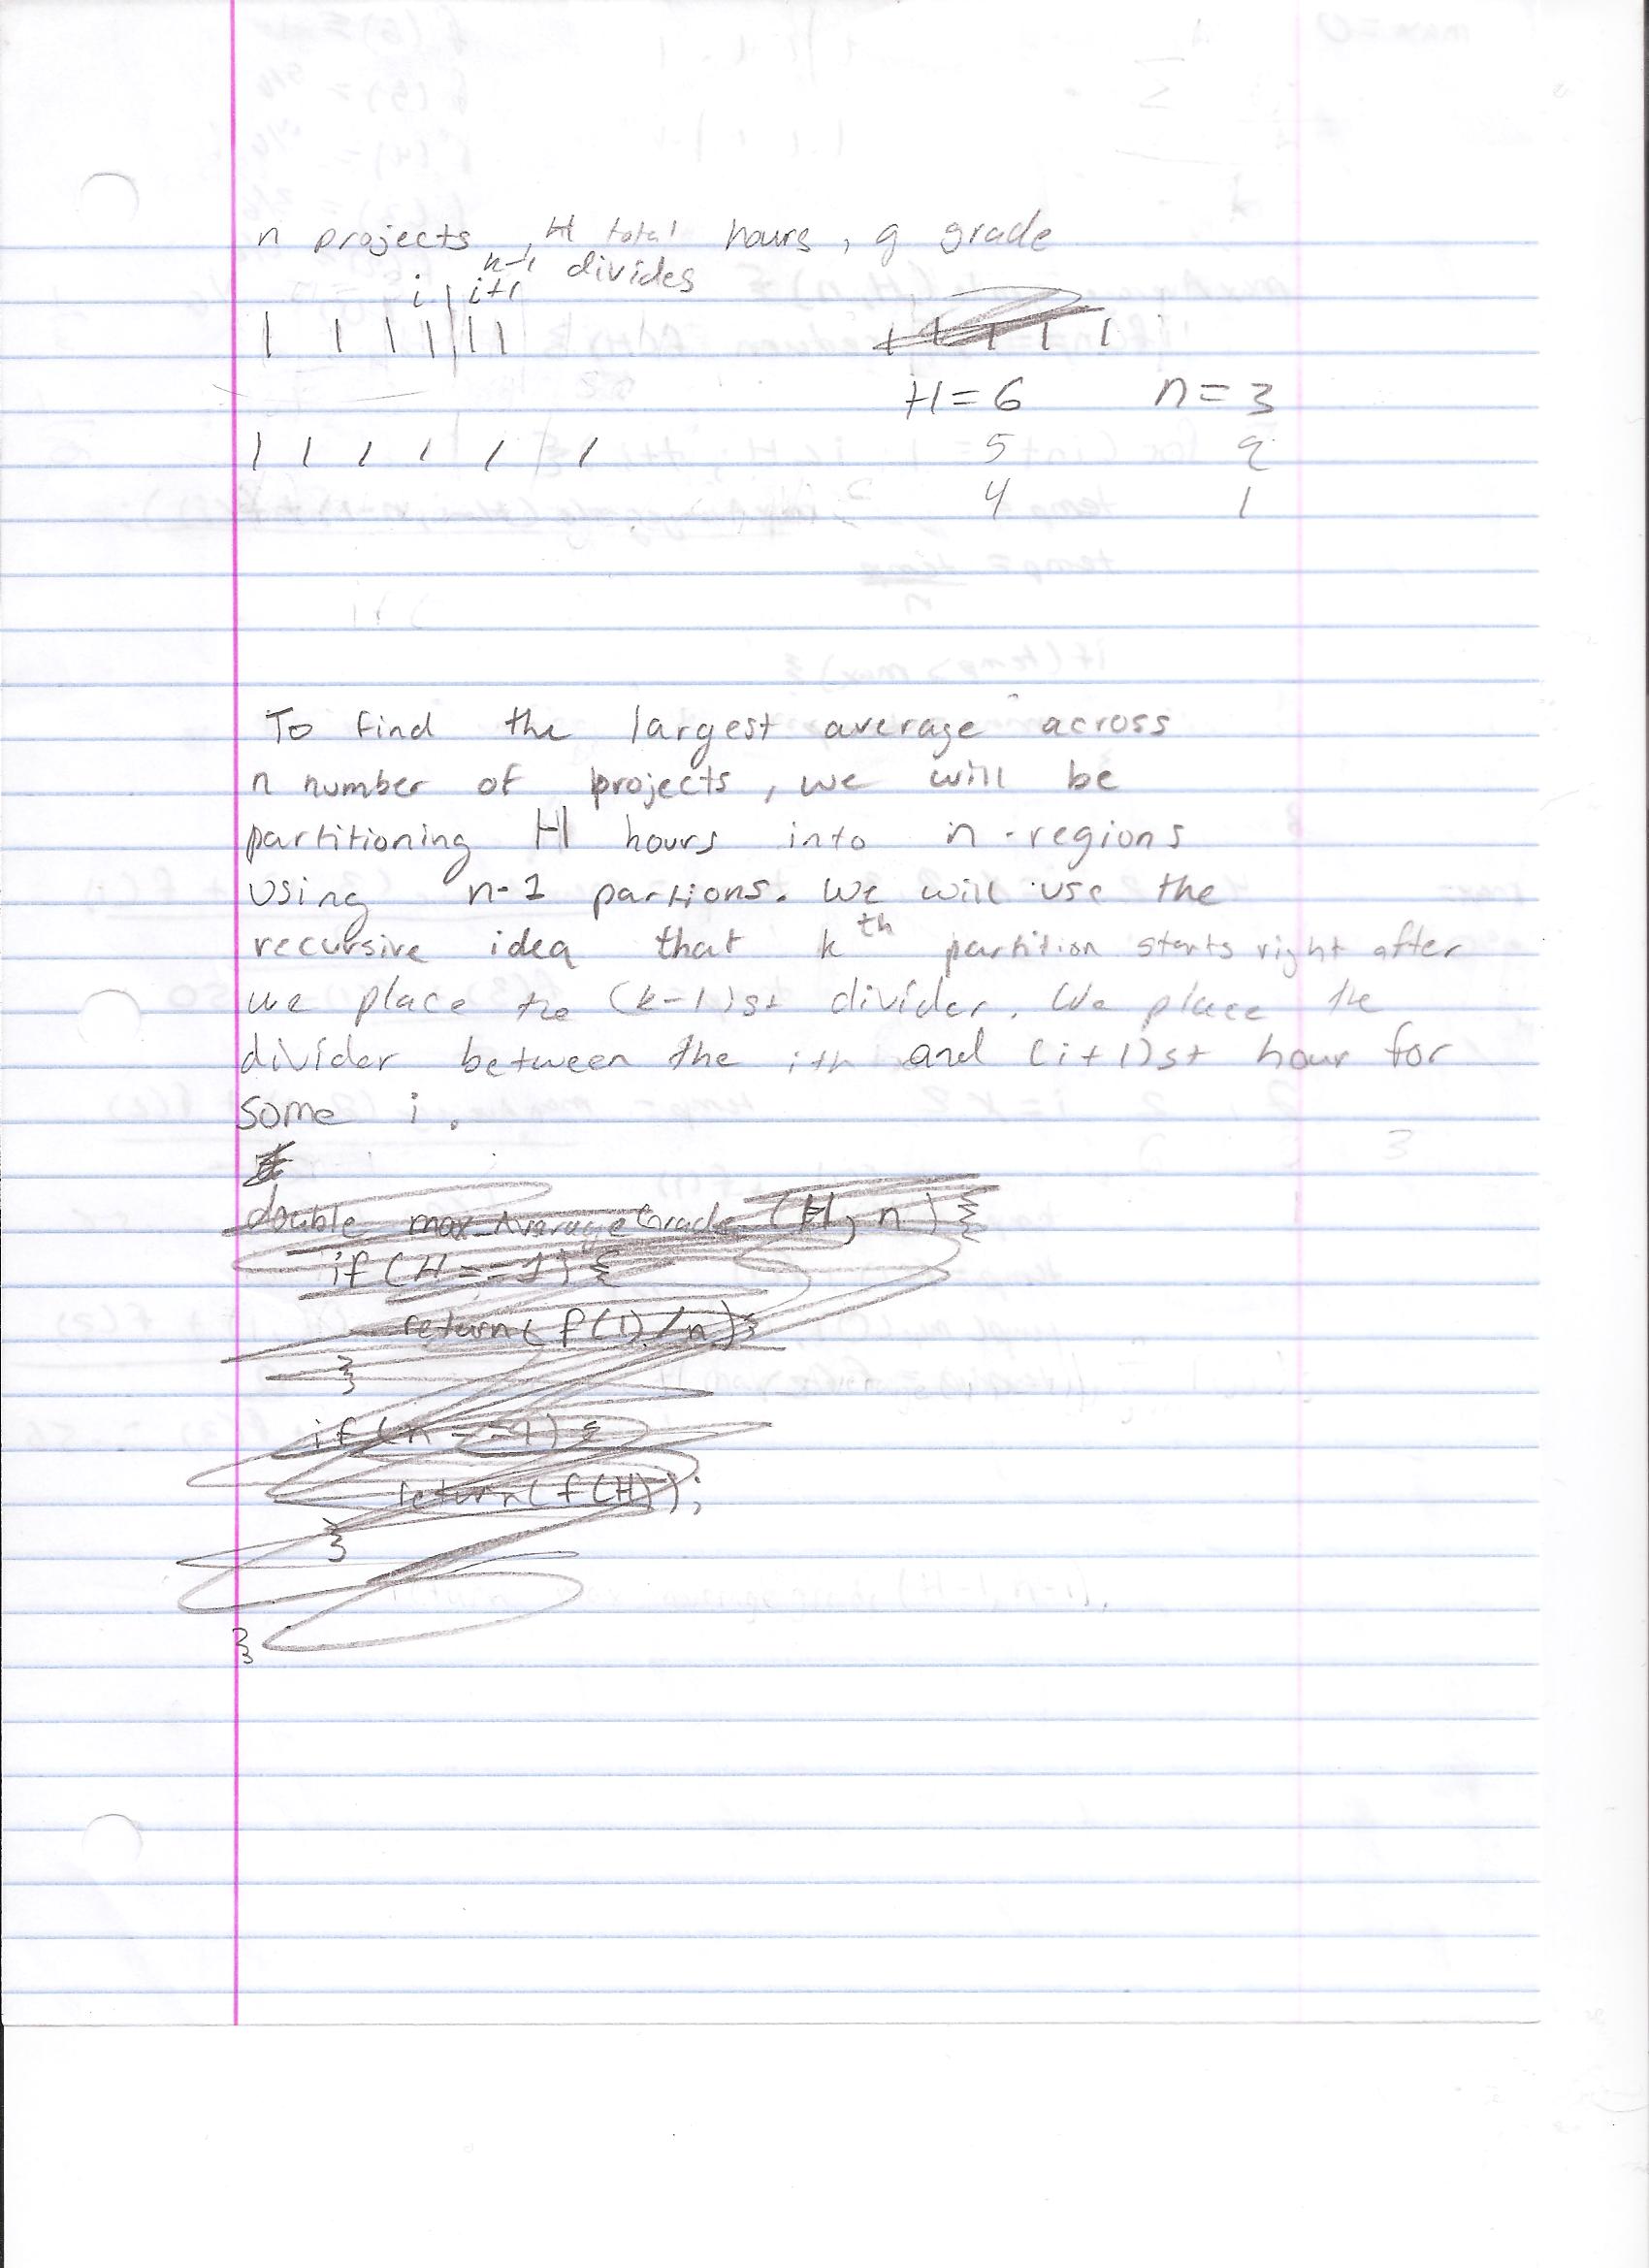 n projects, H total hours, g grade
n-1 divides
i i+1
H=6 n=3
5 2
4 1
To find the largest average across
n number of projects, we will be
partitioning H hours into n-regions
using n-1 partions. We will use the
recursive idea that kth partition starts right after
we place the (k-1)st divider. We place the
divider between the ith and (i+1)st hour for
some i.
double max_AverageGrade (H, n) {
if (H == 1) {
return( f(1)/n);
}
if (n == 1) {
return(f(H));
}
}